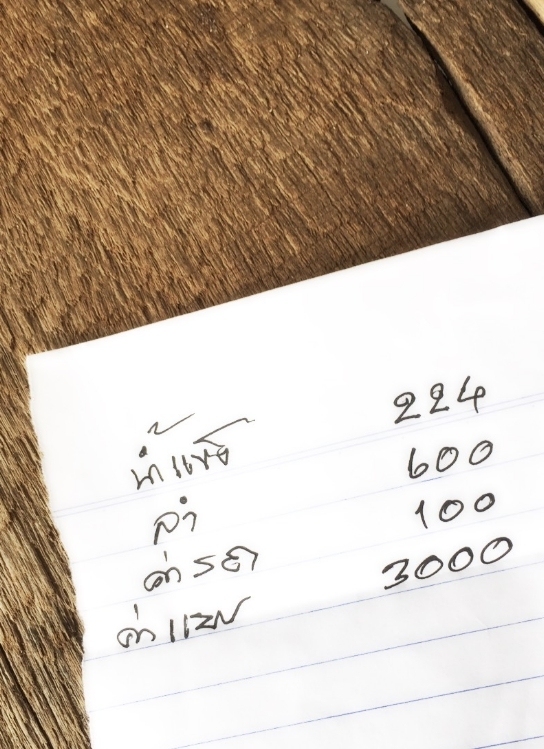 น้ำแข็ง 224
ลำ 600
ค่ารถ 100
ค่าแรง 3000